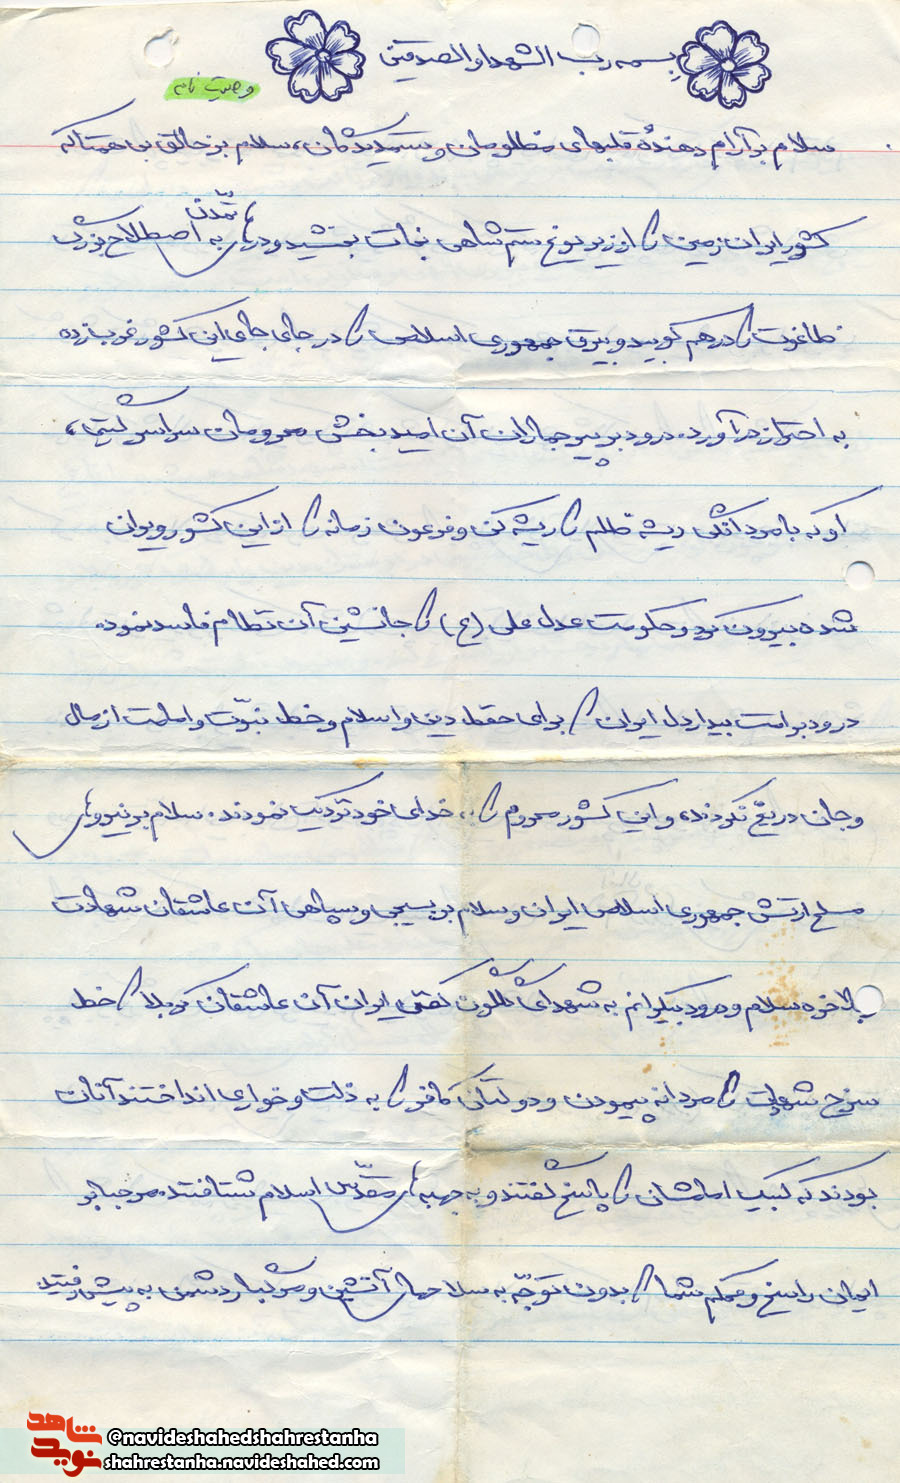 بسمه رب الشهداء و الصدیقین
وصیت نامه
سلام بر آرام دهندهٔ قلبهای مظلومان و ستمدیدگان، سلام بر خالق بی همتا که
کشور ایران زمین را از زیر یوغ ستم شاهی نجات بخشید و درهای به اصطلاح بزرگ
تمدّن
طاغوت را درهم کوبید و بیرق جمهوری اسلامی را در جای جای این کشور غرب زده
به احتزاز درآورد. درود بر پیر جماران آن امید بخش محرومان سراسر گیتی،
او که با مردانگی ریشه ظلم را ریشه کن و فرعون زمانه را از این کشور ویران
شده بیرون کرد و حکومت عدل علی (ع) را جانشین آن نظام فاسد نمود.
درود بر امت بیدار دل ایران که برای حفظ دین و اسلام و خط نبوّت و امامت از مال
و جان دریغ نکردند، و این کشور محروم را به خدای خود نزدیک نمودند. سلام بر نیروهای
مسلح ارتش جمهوری اسلامی ایران و سلام بر بسیجی و سپاهی آن عاشقان شهادت
بالاخره سلام و درود بیکرانم به شهدای گلگون کفن ایران آن عاشقان کربلا که خط
سرخ شهادت را مردانه پیمودن و دولتای کافر را به ذلت و خواری انداختند آنان
بودند که لبیک امامشان را پاسخ گفتند و به جبهه های مقدّس اسلام شتافتند. مرحبا بر
ایمان راسخ و محکم شما که بدون توجّه به سلاحهای آتشین و مرگبار دشمن به پیش رفتید
شاهد
نوید
@navideshahedshahrestanha
shahrestanha.navideshahed.com